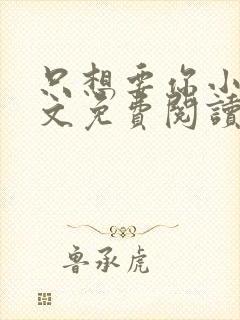 只想要你小
文免費閱讀
魯承虎